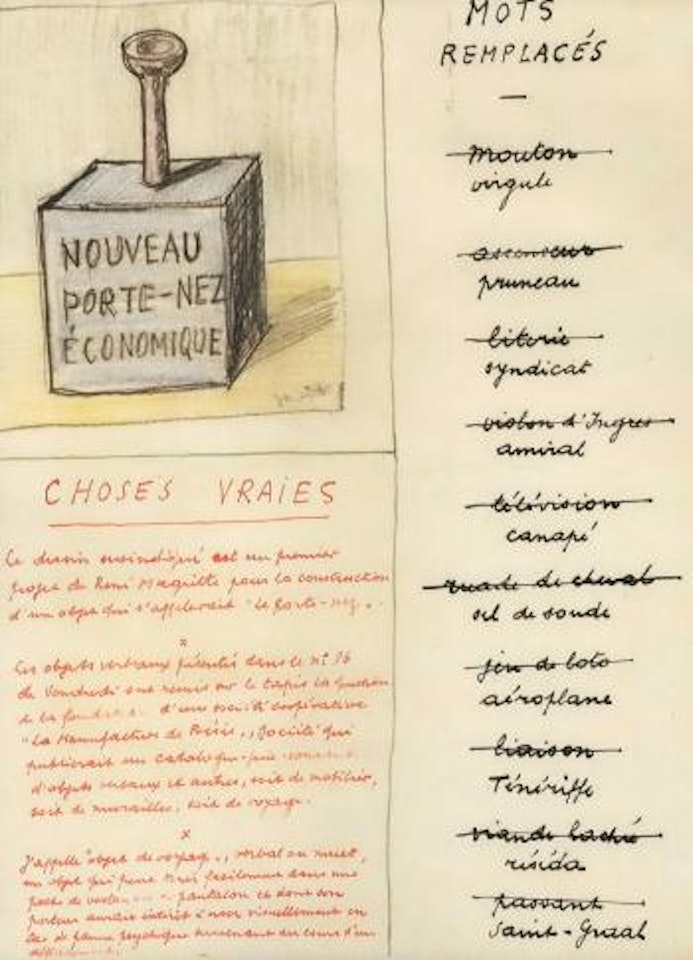 NOUVEAU
PORTE-NEZ
ÉCONOMIQUE
CHOSES VRAIES
Ce dessin est un premier
projet de René Magritte pour la construction
d'un objet qui s'appellerait "Le Porte-nez".
x
Ces objets verbaux présentés dans le n° 16
de Vendredi ont remis sur le tapis la question
de la d'une société coopérative
"La Manufacture de Poésie", Société qui
publierait un catalogue
d'objets verbaux et autres, soit de mobilier,
soit de murailles, soit de voyage.
x
J'appelle "objet de voyage", verbal ou muet,
un objet qui peut tenir facilement dans une
poche de pantalon et dont son
porteur aurait intérêt à user visuellement en
cas de panne psychique survenant au cours d'un
MOTS
REMPLACÉS
—
mouton
virgule
ascenseur
pruneau
literie
syndicat
violon d'Ingres
amiral
télévision
canapé
ruade de cheval
sel de soude
jeu de loto
aéroplane
liaison
Ténériffe
viande haché
réséda
passant
Saint-Graal